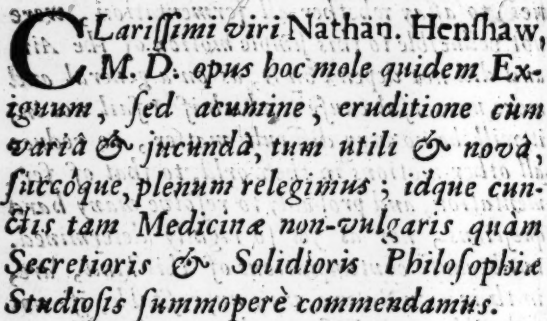 CLariſſimi viri Nathan. Henſhaw,
M. D. opus hoc mole quidem Ex-
iguum, ſed acumine, eruditione cùm
variâ & jucundâ, tum utili & novâ,
ſuccóque, plenum relegimus; idque cun-
ctis tam Medicinæ non-vulgaris quàm
Secretioris & Solidioris Philoſophiæ
Studioſis ſummoperè commendamus.